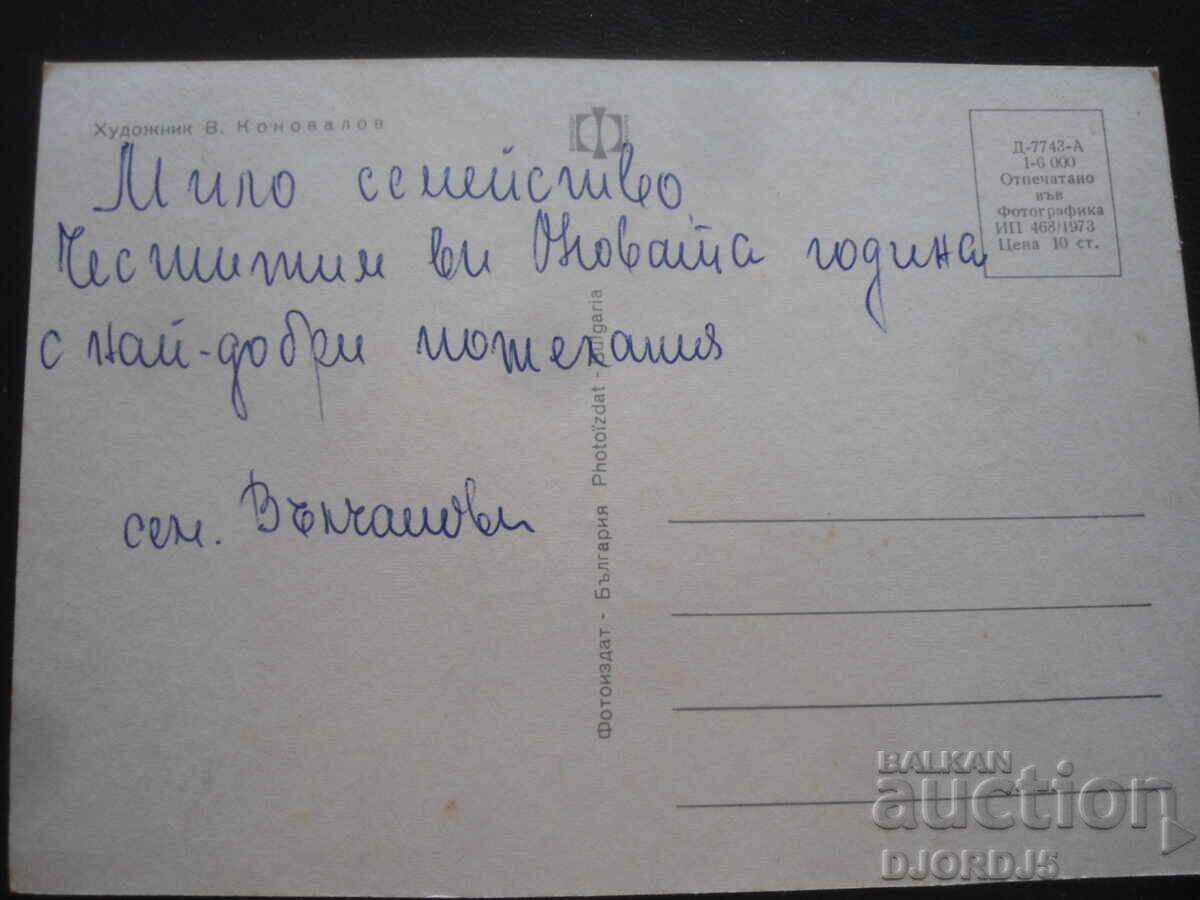 Художник В. Коновалов
Мило семейство,
Честитим ви Новата година
с най-добри пожелания
сем. Вънчанови
Д-7743-А
1-6 000
Отпечатано
във
Фотографика
ИП 468/1973
Цена 10 ст.
Фотоиздат - България Photoïzdat - Bulgaria
BALKAN
auction
DJORDJ5